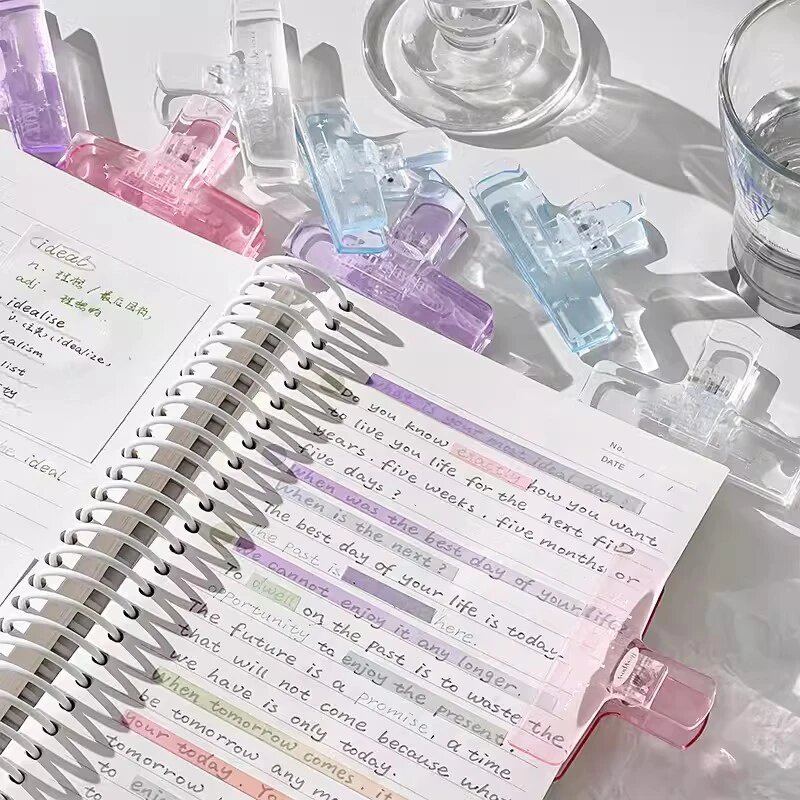 ideal
n: 理想
adj: 理想的
idealise
v. idealize,
idealism
list
ty
the ideal
No.
DATE / /
What is your most ideal day?
Do you know exactly how you want
to live you life for the next fiD
years. five weeks. five months or
five days?
When was the best day of your life
When is the next?
The best day of your life is today.
The past is here.
We cannot enjoy it any longer.
To dwell on the past is to waste the
opportunity to enjoy the present.
The future is a promise, a time
that will not come because what
we have is only today.
When tomorrow comes. it
be tomorrow any mo
your today. Yo
tomorrow
to enjo